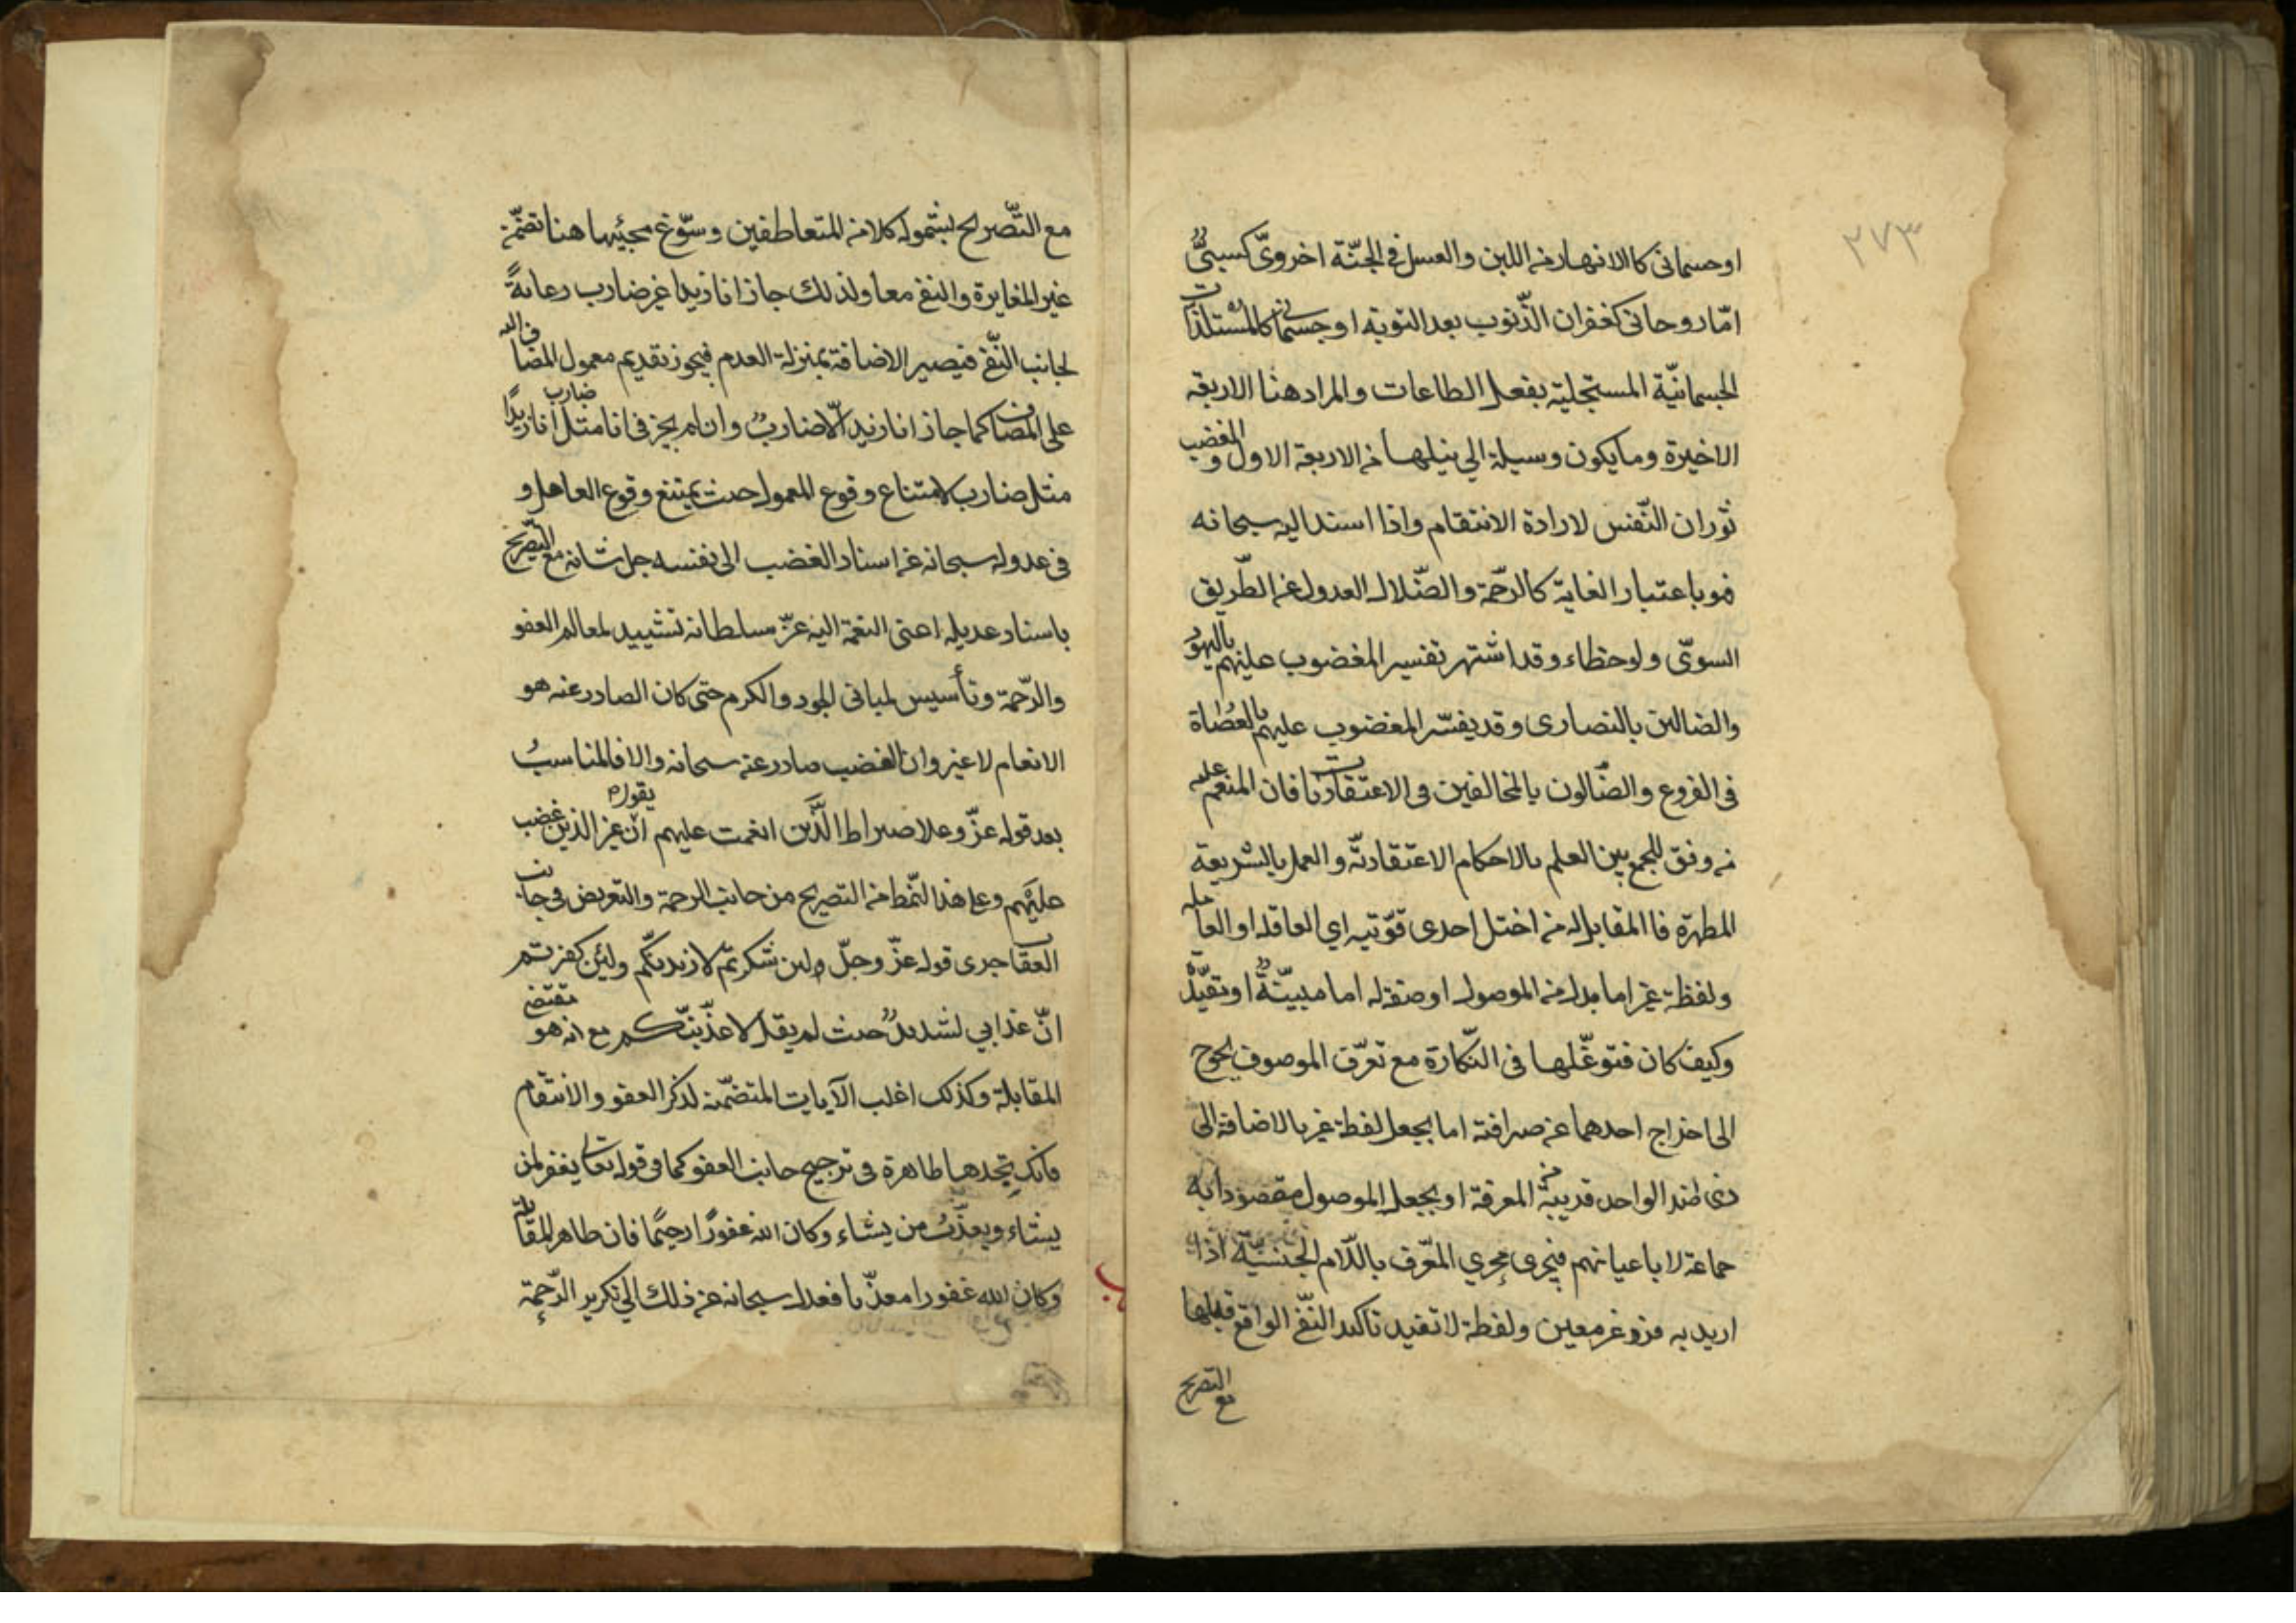 ٢٧٣
او جسمانى كالانهار من اللبن والعسل فى الجنّة اخروىّ كسبىٌّ
امّا روحانى كغفران الذّنوب بعد التوبة او جسمانى كالمستلذّات
الجسمانيّة المستجلبة بفعل الطاعات والمراد هنا الاربعة
الاخيرة وما يكون وسيلة الى نيلها من الاربعة الاول والغضب
ثوران النّفس لارادة الانتقام واذا اسند اليه سبحانه
فهو باعتبار الغاية كالرحّمة والضّلال العدول عن الطّريق
السوىّ ولو خطاء وقد اشتهر تفسير المغضوب عليهم باليهود
والضالين بالنصارى وقد يفسّر المغضوب عليهم بالعُصاة
فى الفروع والضّالون بالمخالفين فى الاعتقاديات فان المنعم عليه
من وفق للجمع بين العلم بالاحكام الاعتقاديّة والعمل بالشريعة
المطهرّة فاالمقابل له من اختل احدى قوّتيه اي العاقلة او العاملة
ولفظة غير اما بدل من الموصول او صفة له اما مبيّنةٌ او مقيّدةٌ
وكيف كان فتوغّلها فى النّكارة مع تعرّف الموصوف يحوج
الى اخراج احدهما عن صرافته اما بجعل لفظة غير بالاضافة الى
ذى ضد الواحد قريبة من المعرفة او بجعل الموصول مقصودا به
جماعة لا باعيانهم فيجرى مجري المعّرف باللّام الجنسيّة اذا
اريد به فرد غير معين ولفظة لا تفيد تاكيد النّفى الواقع قبلها
مع التصريح
مع التّصريح بشموله كلا من المتعاطفين وسّوغ مجيئها هنا تضمّن
غير المغايرة والنفى معا ولذلك جاز انا زيدا غير ضارب رعايةً
لجانب النّفى فيصير الاضافة بمنزلة العدم فيجوز تقديم معمول المضاف اليه
على المضاف كما جاز انا زيدا لا ضاربٌ وان لم يجز فى انا مثل ضارب زيدا انا زيدًا
مثل ضارب لامتناع وقوع المعمول حيث يمتنع وقوع العامل و
فى عدوله سبحانه عن اسناد الغضب الى نفسه جل شانه مع التصريح
باسناد عديله اعنى النعمة اليه عزّ سلطانه تشييد لمعالم العفو
والرّحمة وتأسيس لمبانى الجود والكرم حتى كان الصادر عنه هو
الانعام لا غير وان الغضب صادر عن سبحانه والا فالمناسبُ
بعد قوله عزّ وعلا صراط الَّذين انعمت عليهم ان يقول غير الذين غضب
عليهم وعلى هذا النّمط من التصريح من جانب الرحمة والتعريض فى جانب
العقاب جرى قوله عزّ وجلّ ولئن شكرتم لازيدنّكم ولئن كفرتم
انّ عذابي لشديدٌ حيث لم يقل لاعذّبنّكم مع انه هو مقتضى
المقابلة وكذلك اغلب الآيات المتضمّنه لذكر العفو والانتقام
فانك تجدها ظاهرة فى ترجيح جانب العفو كما فى قوله تعالى يغفر لمن
يشاء ويعذّبُ من يشاء وكان الله غفورًا رحيمًا فان ظاهر المقابلة
وكان الله غفورا معذّبا فعدل سبحانه عن ذلك الى تكرير الرّحمة